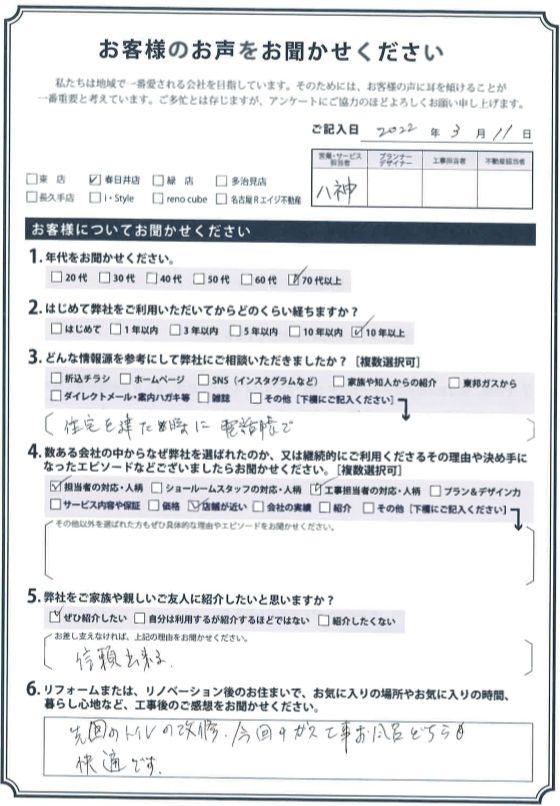 お客様のお声をお聞かせください
私たちは地域で一番愛される会社を目指しています。そのためには、お客様の声に耳を傾けることが
一番重要と考えています。ご多忙とは存じますが、アンケートにご協力のほどよろしくお願い申し上げます。
ご記入日 2022 年 3 月 11 日
営業・サービス担当者 プランナーデザイナー 工事担当者 不動産担当者
八神
□東 店 ☑春日井店 □緑 店 □多治見店
□長久手店 □i・Style □reno cube □名古屋Rエイジ不動産
お客様についてお聞かせください
1.年代をお聞かせください。
□20代 □30代 □40代 □50代 □60代 ☑70代以上
2.はじめて弊社をご利用いただいてからどのくらい経ちますか?
□はじめて □1年以内 □3年以内 □5年以内 □10年以内 ☑10年以上
3.どんな情報源を参考にして弊社にご相談いただきましたか?[複数選択可]
□折込チラシ □ホームページ □SNS(インスタグラムなど) □家族や知人からの紹介 □東邦ガスから
□ダイレクトメール・案内ハガキ等 □雑誌 □その他[下欄にご記入ください]
住宅を建た時に電話帳で
4.数ある会社の中からなぜ弊社を選ばれたのか、又は継続的にご利用くださるその理由や決め手に
なったエピソードなどございましたらお聞かせください。[複数選択可]
☑担当者の対応・人柄 □ショールームスタッフの対応・人柄 ☑工事担当者の対応・人柄 □プラン&デザイン力
□サービス内容や保証 □価格 ☑店舗が近い □会社の実績 □紹介 □その他[下欄にご記入ください]
その他以外を選ばれた方もぜひ具体的な理由やエピソードをお聞かせください。
5.弊社をご家族や親しいご友人に紹介したいと思いますか?
☑ぜひ紹介したい □自分は利用するが紹介するほどではない □紹介したくない
お差し支えなければ、上記の理由をお聞かせください。
信頼出来る.
6.リフォームまたは、リノベーション後のお住まいで、お気に入りの場所やお気に入りの時間、
暮らし心地など、工事後のご感想をお聞かせください。
先回のトイレの改修.今回のガス工事お風呂どちらも
快適です.